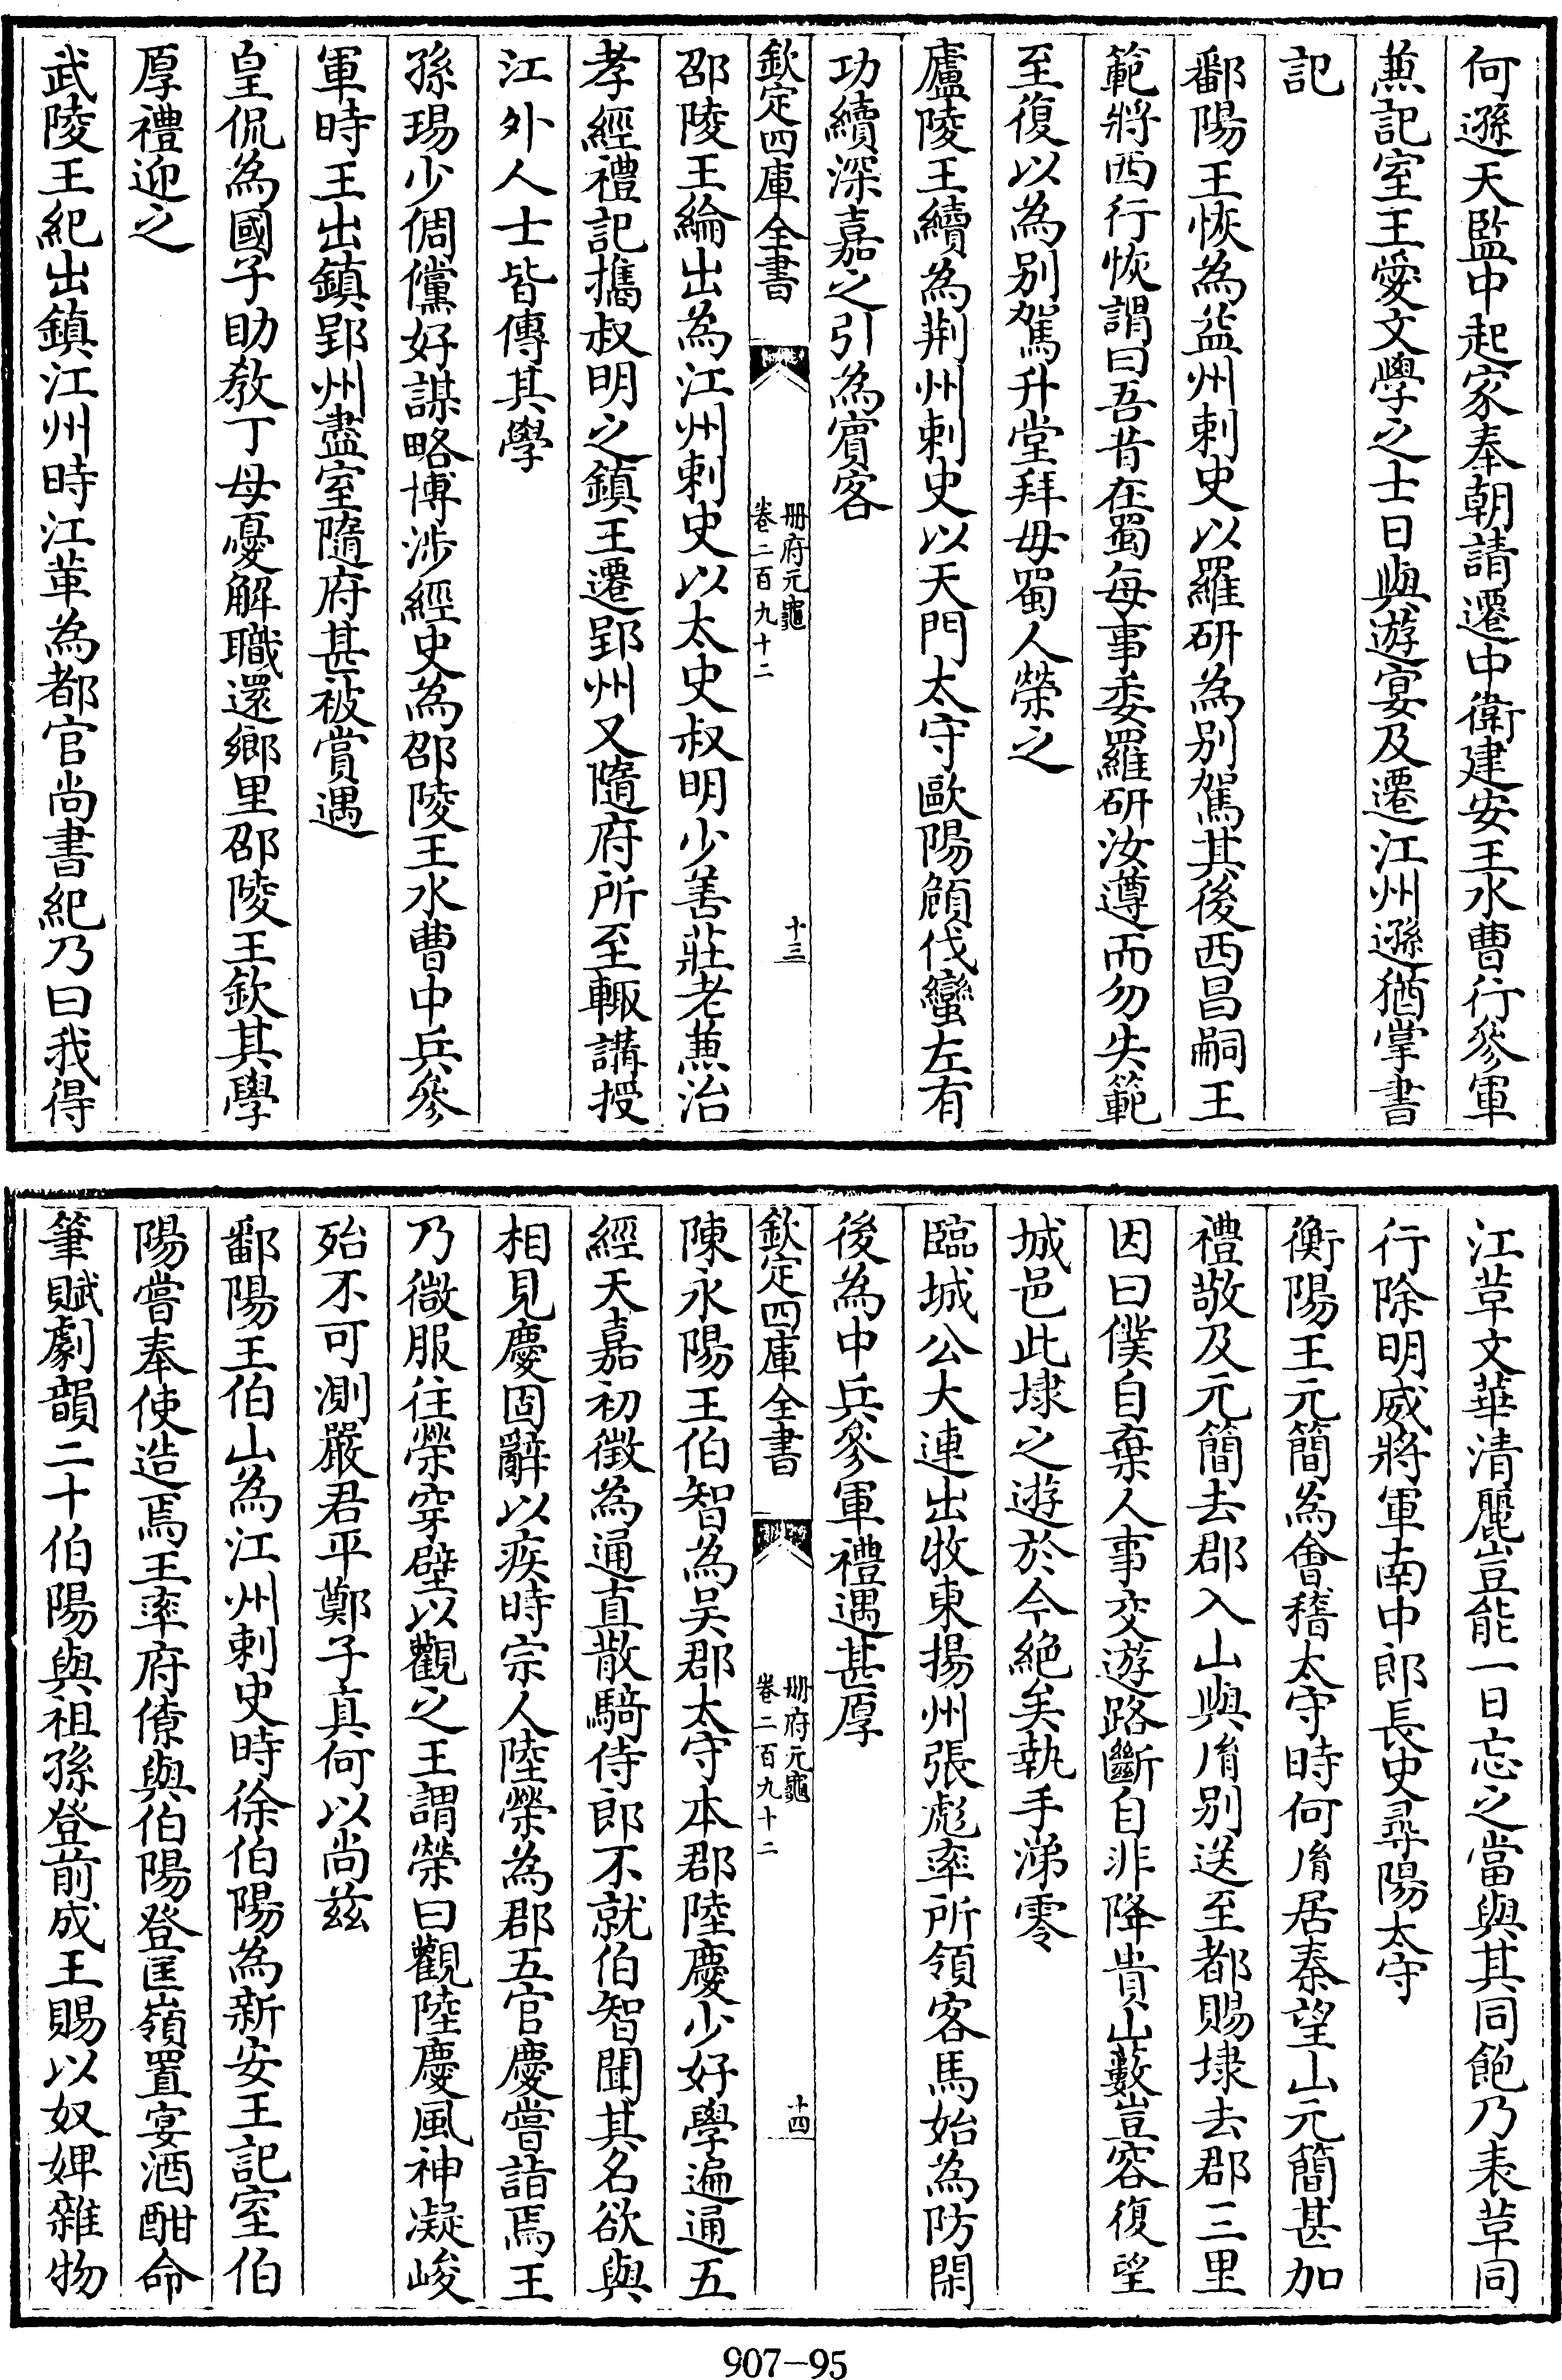 何遜天監中起家奉朝請遷中衛建安王水曹行參軍
兼記室王愛文學之士日與遊宴及遷江州遜猶掌書
記
鄱陽王恢為益州刺史以羅研為别駕其後西昌嗣王
範將西行恢謂曰吾昔在蜀每事委羅研汝遵而勿失範
至復以為别駕升堂拜母蜀人榮之
廬陵王續為荆州刺史以天門太守歐陽頠伐蠻左有
功續深嘉之引為賓客
欽定四庫全書
冊府元龜
卷二百九十二
十三
邵陵王綸出為江州刺史以太史叔明少善莊老兼治
孝經禮記攜叔明之鎮王遷郢州又隨府所至輙講授
江外人士皆傳其學
孫瑒少倜儻好謀略博涉經史為邵陵王水曹中兵參
軍時王出鎮郢州盡室隨府甚被賞遇
皇侃為國子助教丁母憂解職還鄉里邵陵王欽其學
厚禮迎之
武陵王紀出鎮江州時江革為都官尚書紀乃曰我得
江草文華清麗豈能一日忘之當與其同飽乃表草同
行除明威將軍南中郎長史尋陽太守
衡陽王元簡為會稽太守時何㣧居秦望山元簡甚加
禮敬及元簡去郡入山與㣧别送至都賜埭去郡三里
因曰僕自棄人事交遊路斷自非降貴山藪豈容復望
城邑此埭之遊於今絶矣執手涕零
臨城公大連出牧東揚州張彪率所領客馬始為防閑
後為中兵參軍禮遇甚厚
欽定四庫全書
冊府元龜
卷二百九十二
十四
陳永陽王伯智為吳郡太守本郡陸慶少好學遍通五
經天嘉初徵為通直散騎侍郎不就伯智聞其名欲與
相見慶固辭以疾時宗人陸榮為郡五官慶嘗詣焉王
乃微服往榮穿壁以觀之王謂榮曰觀陸慶風神凝峻
殆不可測嚴君平鄭子真何以尚兹
鄱陽王伯山為江州刺史時徐伯陽為新安王記室伯
陽嘗奉使造焉王率府僚與伯陽登匡嶺置宴酒酣命
筆賦劇韻二十伯陽與祖孫登前成王賜以奴婢雜物
907-95